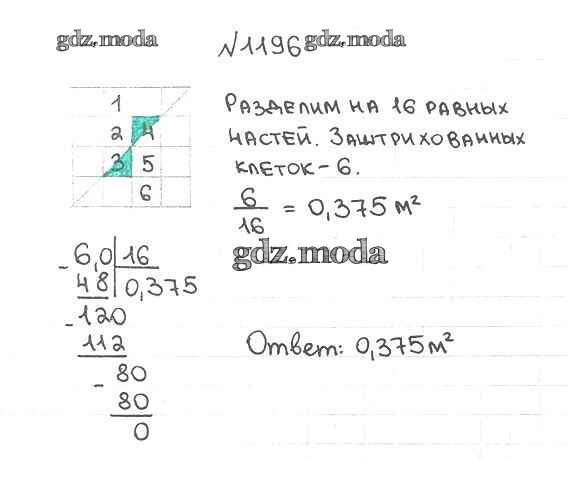 gdz.moda
№1196 gdz.moda
1
2 4
3 5
6
Разделим на 16 равных
частей. Заштрихованных
клеток - 6.
6/16 = 0,375 м²
gdz.moda
- 6,0 | 16
48 | 0,375
- 120
112
- 80
80
0
Ответ: 0,375 м²